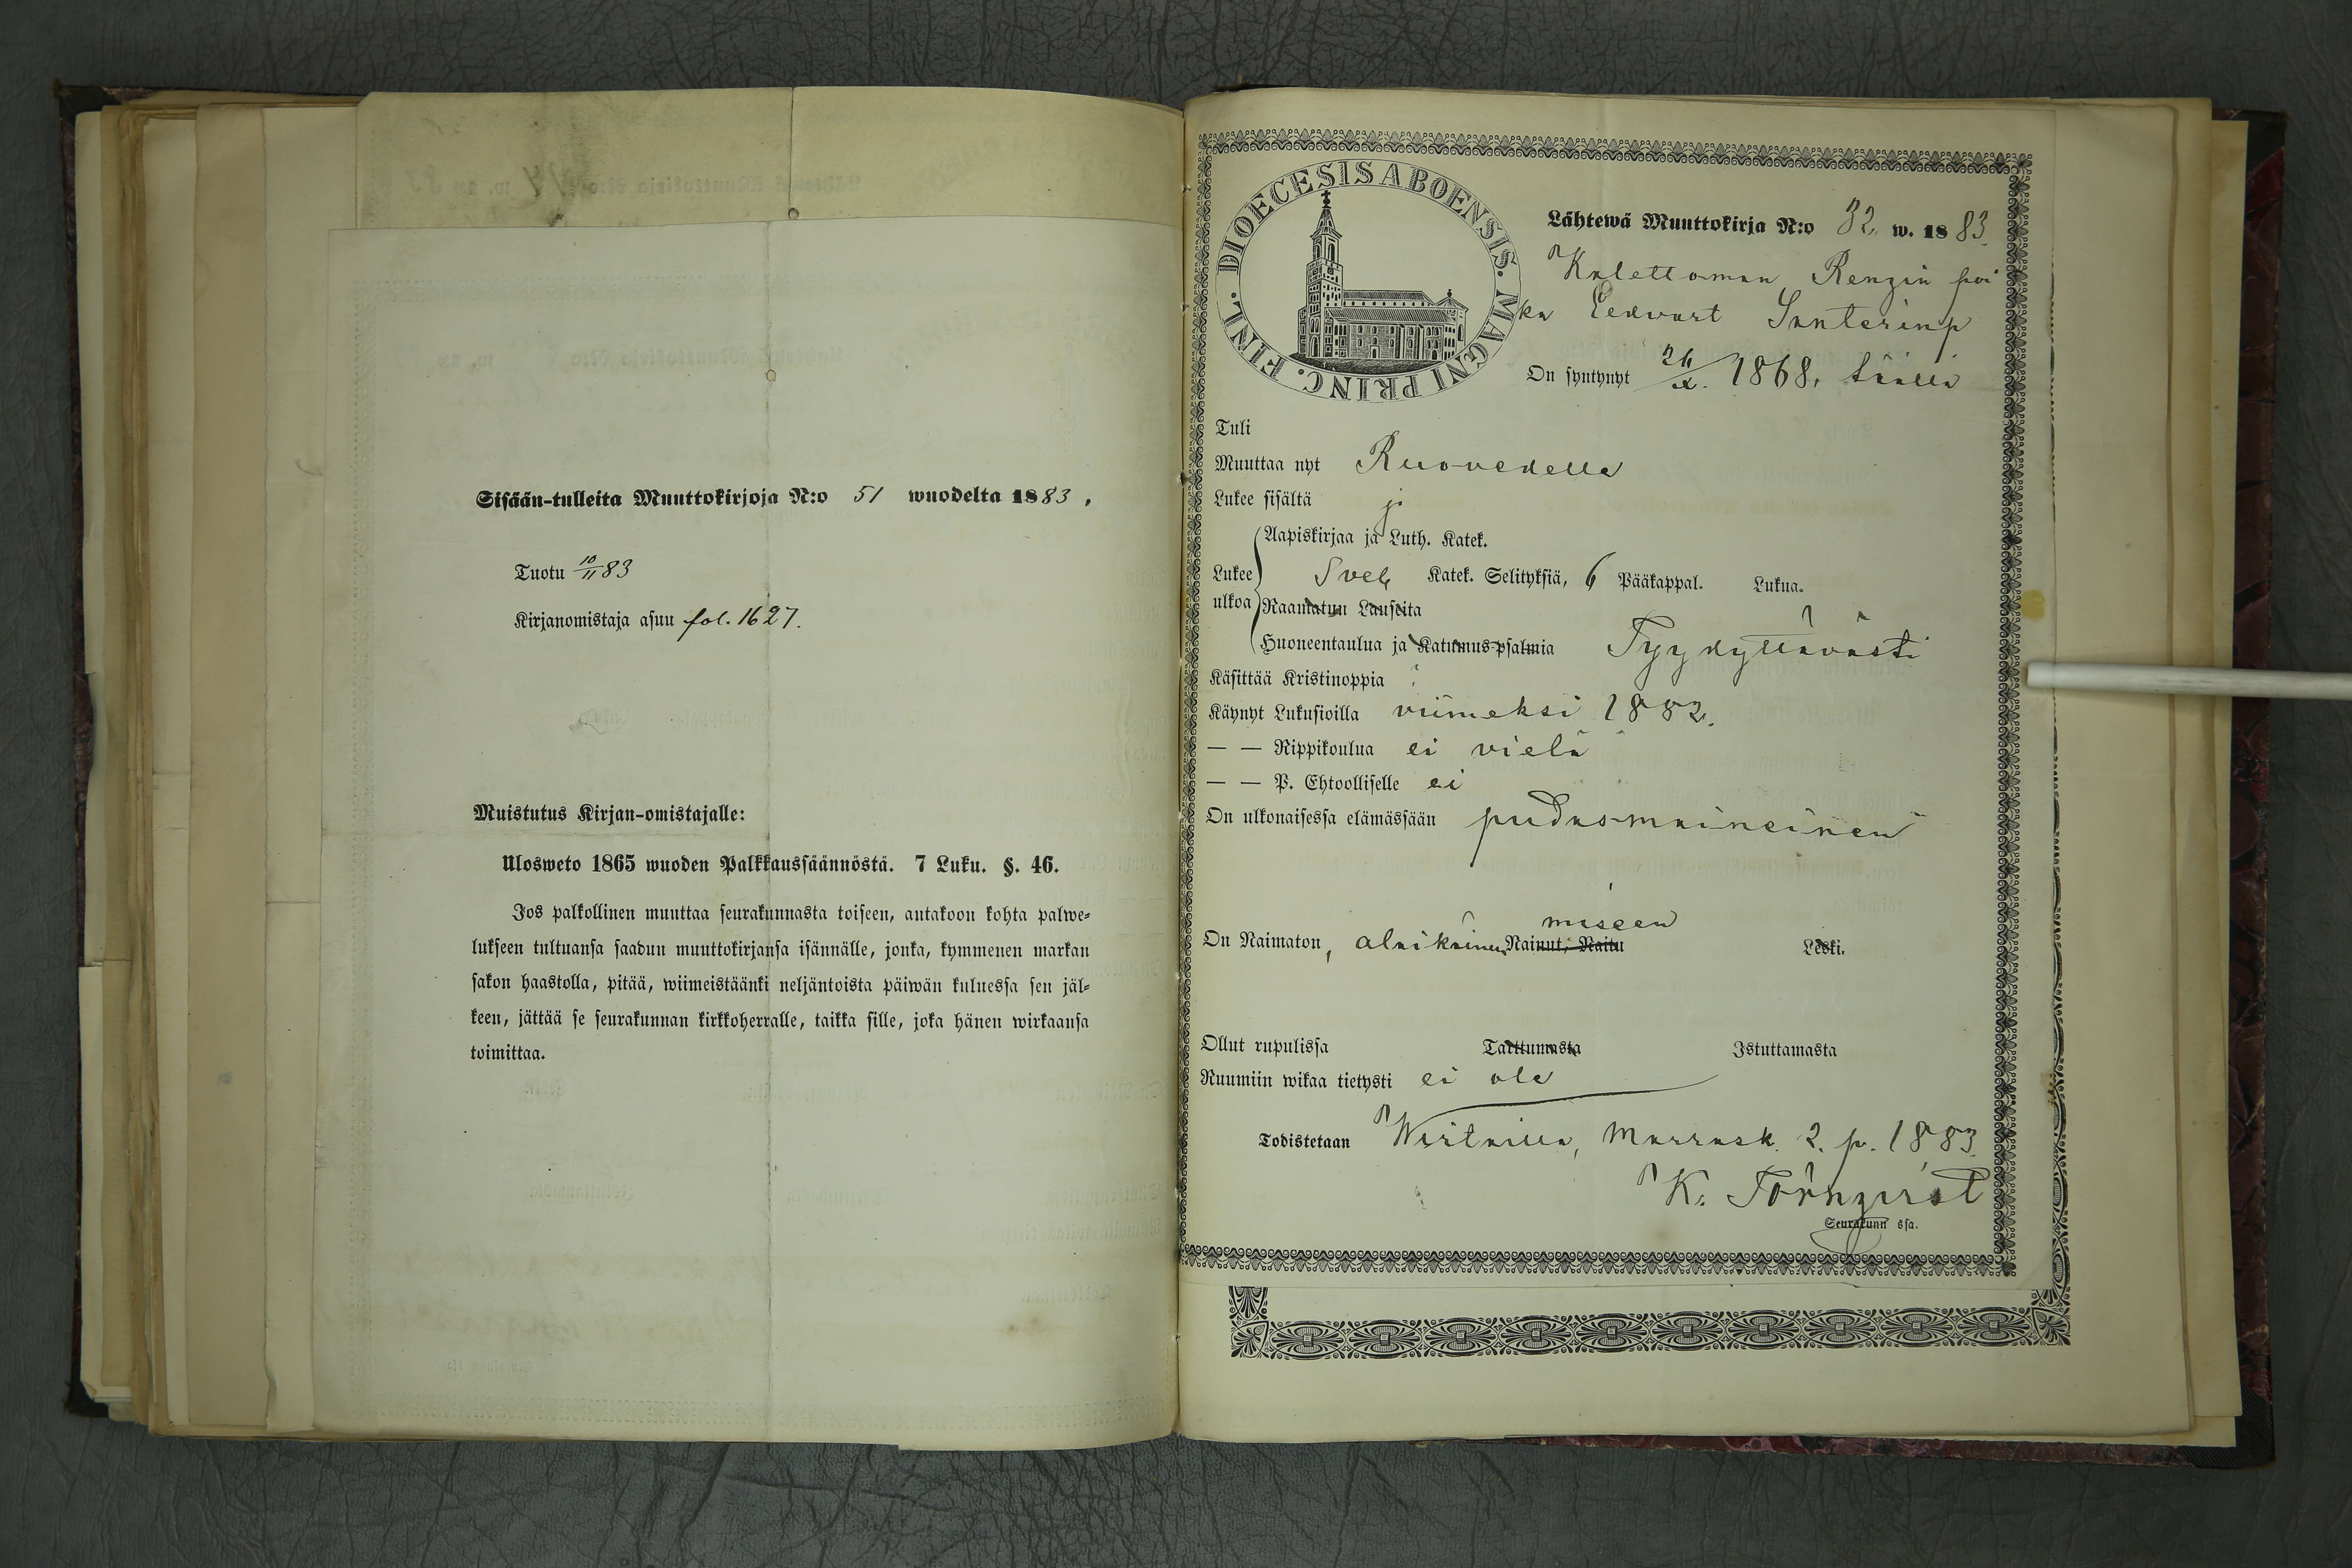 Sisään-tulleita Muuttokirjoja N:o 51 wuodelta 1883.
Tuotu 10/11 83
Kirjanomistaja asuu fol. 1627.
Muistutus Kirjan-omistajalle:
Ulosweto 1865 wuoden Palkkaussäännöstä. 7 Luku. §. 46.
Jos palkollinen muuttaa seurakunnasta toiseen, antakoon kohta palwe-
lukseen tultuansa saadun muuttokirjansa isännälle, jonka, kymmenen markan
sakon haastolla, pitää, wiimeistäänki neljäntoista päiwän kuluessa sen jäl-
keen, jättää se seurakunnan kirkkoherralle, taikka sille, joka hänen wirkaansa
toimittaa.
FINL. DIOECESIS ABOENSIS. MAGNI PRINC.
Lähtewä Muuttokirja N:o 32. w. 1883.
Renqin poi
ka Eedvart Santerinp
On syntynyt 1868. täällä
Tuli
Muuttaa nyt Ruovedelle
Lukee sisältä
Aapiskirjaa ja Luth. Katek.
Lukee ulkoa Sveb. Katek. Selityksiä, 6 Pääkappal. Lukua.
Raamatun Lauseita
Huoneentaulua ja Katumus-psalmia Tyydyttävästi
Käsittää Kristinoppia
Käynyt Lukusioilla viimeksi 1882.
— — Rippikoulua ei vielä
— — P. Ehtoolliselle ei
On ulkonaisessa elämässään puhdasmaineinen
miseen
On Naimaton, alaikäinen Nainut, Naitu Leski.
Ollut rupulissa Tarttumasta Istuttamasta
Ruumiin wikaa tietysti ei ole
Todistetaan Wirtailla, Marrask. 2. p. 1883.
K. Törnqvist
Seurakunn ssa.